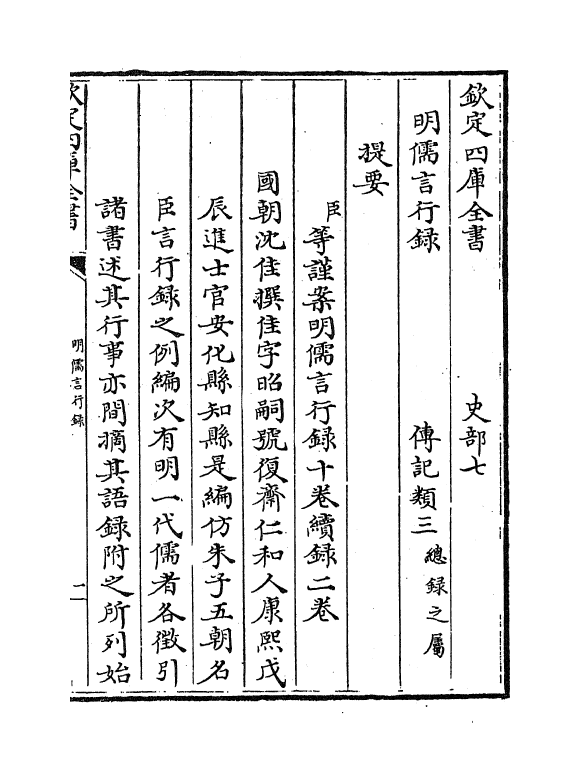 欽定四庫全書　史部七
明儒言行録　傳記類三總録之屬
提要
臣等謹案明儒言行録十卷續録二卷
國朝沈佳撰佳字昭嗣號復齋仁和人康熙戊
辰進士官安化縣知縣是編仿朱子五朝名
臣言行録之例編次有明一代儒者各徴引
諸書述其行事亦間摘其語録附之所列始
欽定四庫全書　明儒言行録　二